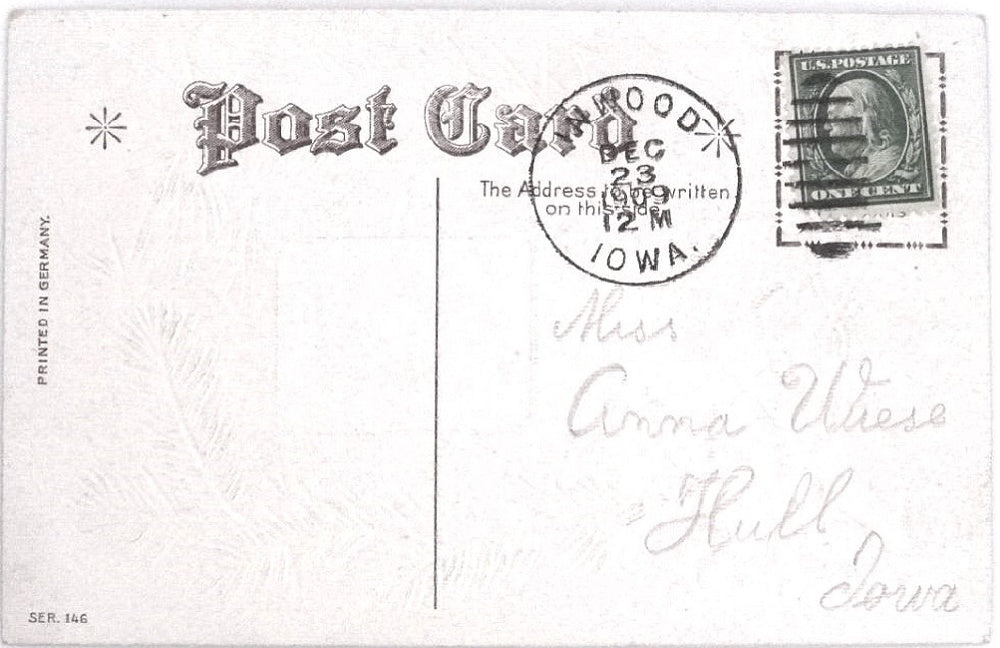 Post Card
The Address to be written
on this side
INWOOD
DEC
23
1909
12 M
IOWA.
U.S. POSTAGE
ONE CENT
Miss
Anna Wiese
Hull
Iowa
PRINTED IN GERMANY.
SER. 146